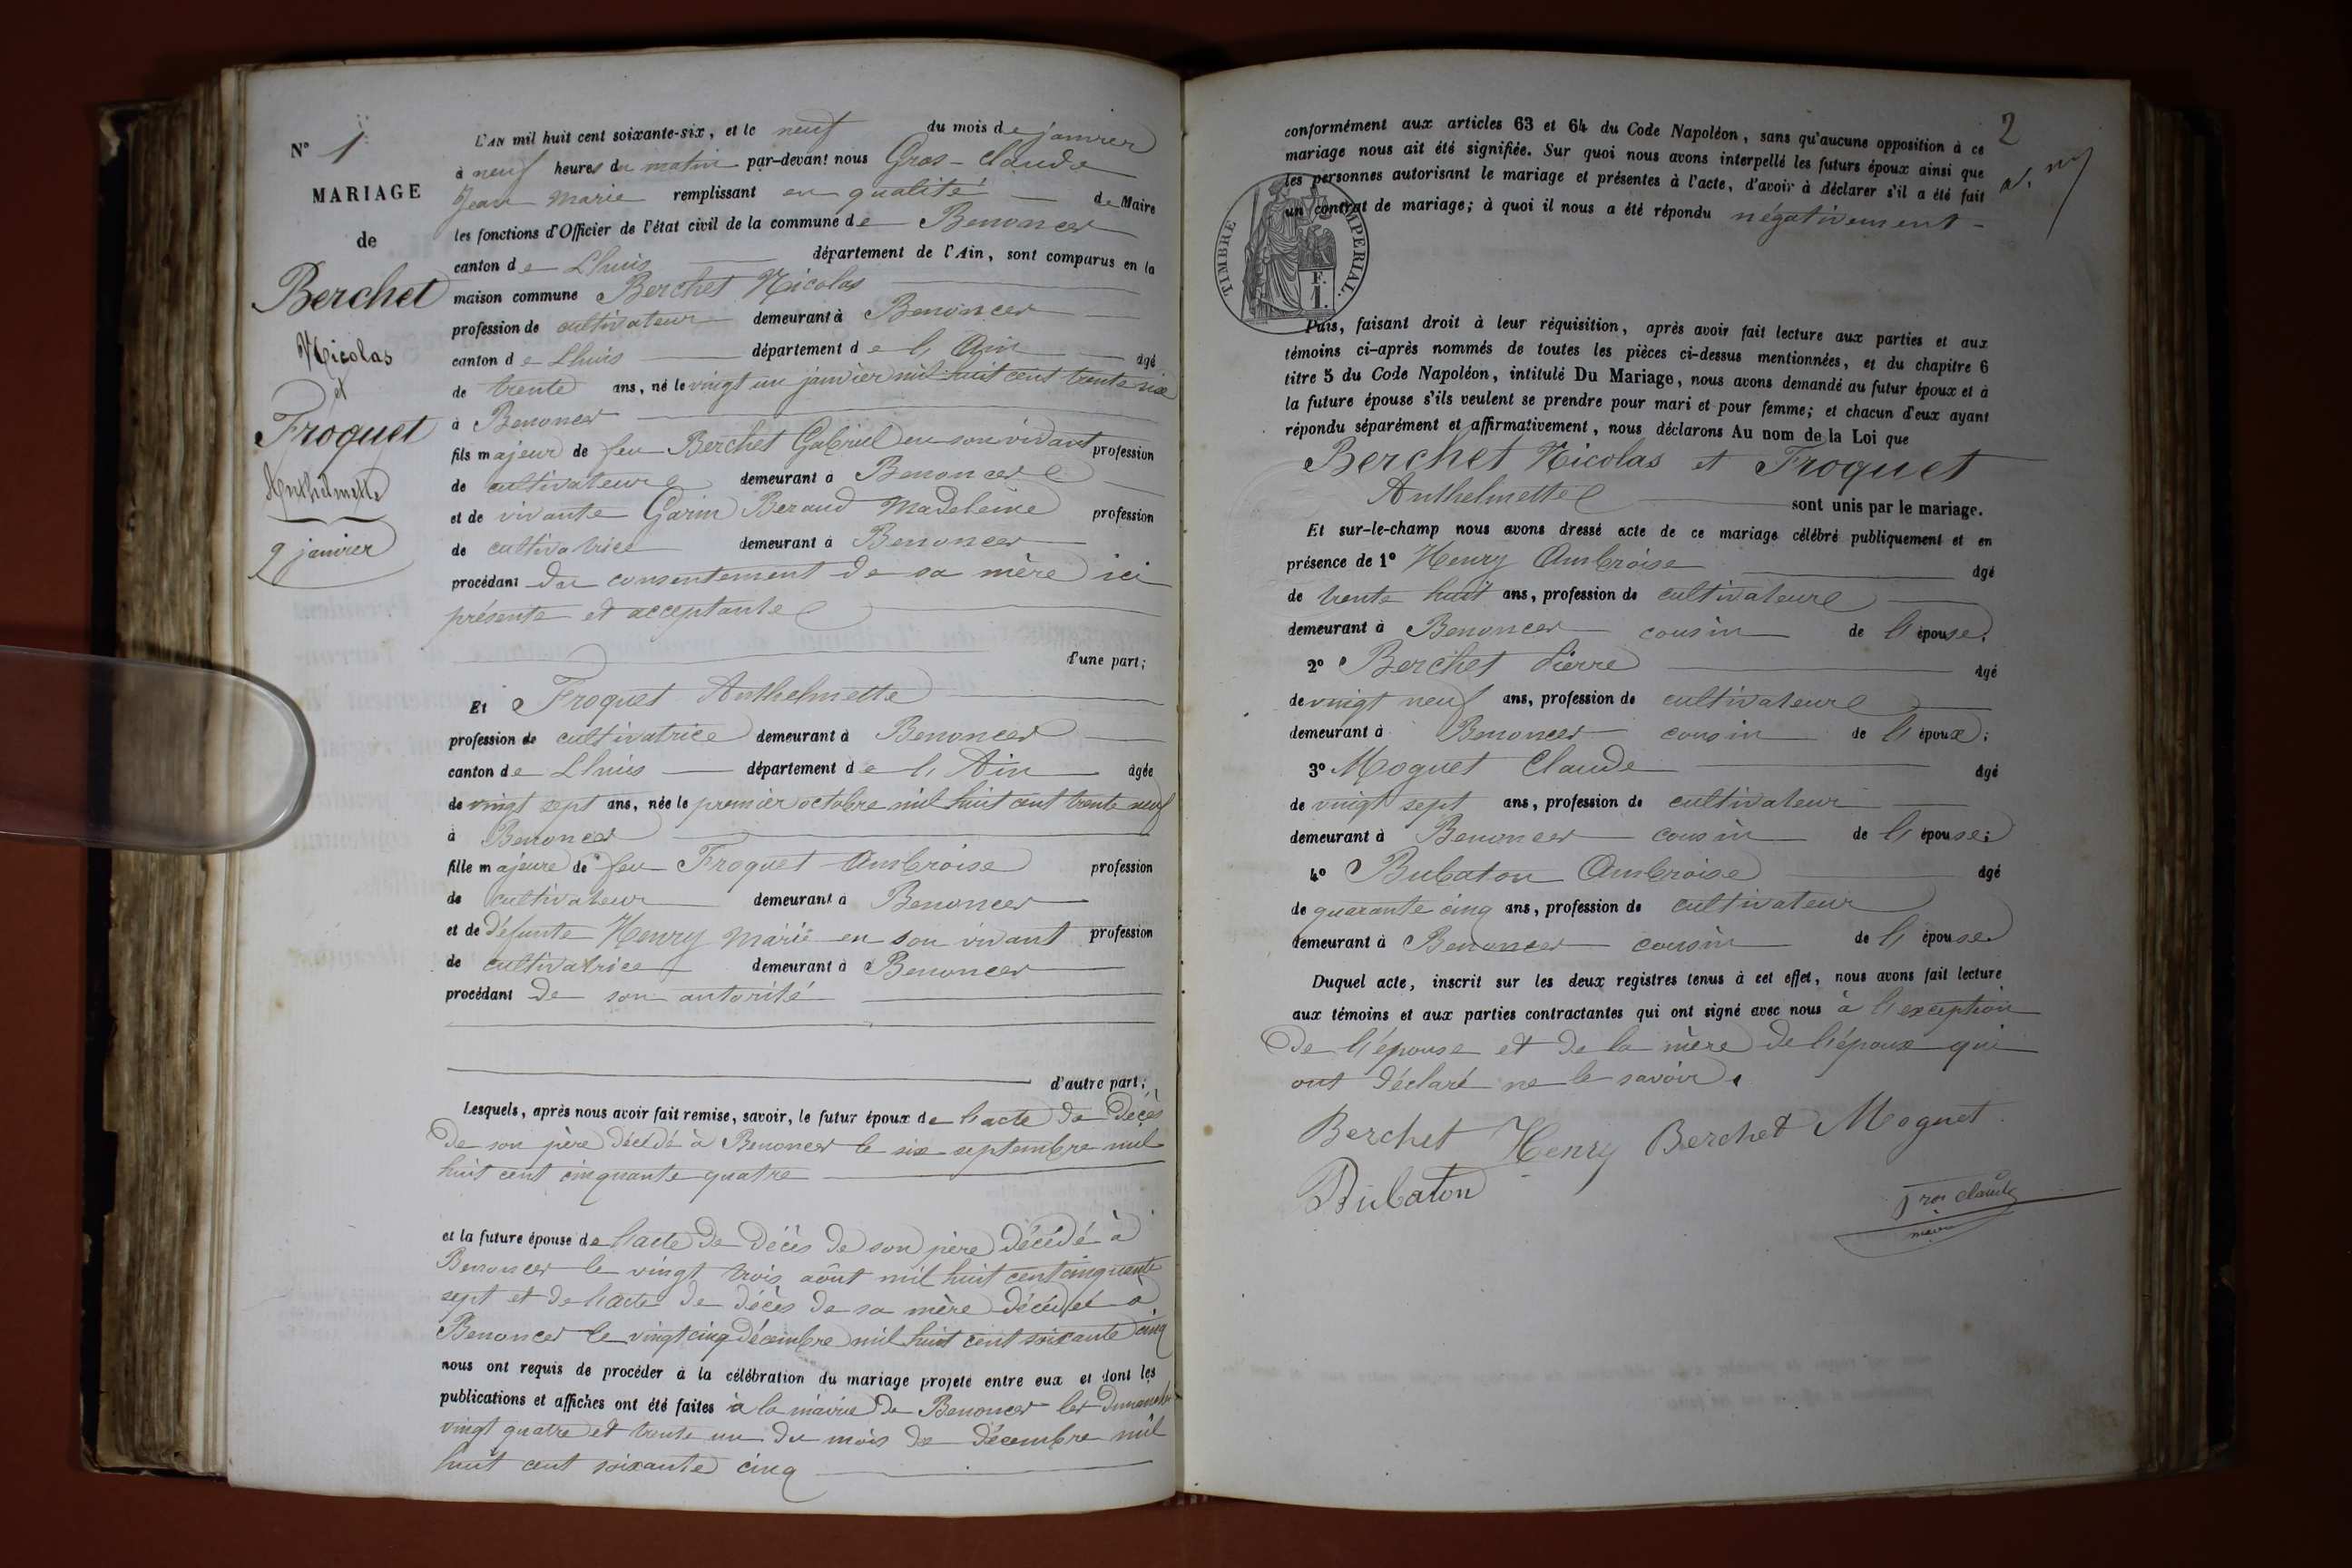 N° 1
MARIAGE
de
Berchet
Nicolas
et
Froquet
Anthelmette
9 janvier
L'AN mil huit cent soixante-six, et le neuf du mois de janvier
à neuf heures du matin par-devant nous Gros-Claude
Jean Marie remplissant en qualité de Maire
les fonctions d'Officier de l'état civil de la commune de Benonces
canton de Lhuis département de l'Ain, sont comparus en la
maison commune Berchet Nicolas
profession de cultivateur demeurant à Benonces
canton de Lhuis département de l'Ain âgé
de trente ans, né le vingt un janvier mil huit cent trente six
à Benonces
fils majeur de feu Berchet Gabriel en son vivant profession
de cultivateur demeurant à Benonces
et de vivante Garin Beraud Madeleine profession
de cultivatrice demeurant à Benonces
procédant du consentement de sa mère ici
présente et acceptante
d'une part;
Et Froquet Anthelmette
profession de cultivatrice demeurant à Benonces
canton de Lhuis département de l'Ain âgée
de vingt sept ans, née le premier octobre mil huit cent trente neuf
à Benonces
fille majeure de feu Froquet Ambroise profession
de cultivateur demeurant à Benonces
et de défunte Henry Marie en son vivant profession
de cultivatrice demeurant à Benonces
procédant de son autorité
d'autre part;
Lesquels, après nous avoir fait remise, savoir, le futur époux de l'acte de décès
de son père décédé à Benonces le six septembre mil
huit cent cinquante quatre
et la future épouse de l'acte de décès de son père décédé à
Benonces le vingt trois août mil huit cent cinquante
sept et de l'acte de décès de sa mère décédée à
Benonces le vingt cinq décembre mil huit cent soixante cinq
nous ont requis de procéder à la célébration du mariage projeté entre eux et dont les
publications et affiches ont été faites à la mairie de Benonces les dimanche
vingt quatre et trente un du mois de décembre mil
huit cent soixante cinq
2
conformément aux articles 63 et 64 du Code Napoléon, sans qu'aucune opposition à ce
mariage nous ait été signifiée. Sur quoi nous avons interpellé les futurs époux ainsi que
les personnes autorisant le mariage et présentes à l'acte, d'avoir à déclarer s'il a été fait
un contrat de mariage; à quoi il nous a été répondu négativement
TIMBRE IMPERIAL.
F.
1.
Puis, faisant droit à leur réquisition, après avoir fait lecture aux parties et aux
témoins ci-après nommés de toutes les pièces ci-dessus mentionnées, et du chapitre 6
titre 5 du Code Napoléon, intitulé Du Mariage, nous avons demandé au futur époux et à
la future épouse s'ils veulent se prendre pour mari et pour femme; et chacun d'eux ayant
répondu séparément et affirmativement, nous déclarons Au nom de la Loi que
Berchet Nicolas et Froquet
Anthelmette sont unis par le mariage.
Et sur-le-champ nous avons dressé acte de ce mariage célébré publiquement et en
présence de 1° Henry Ambroise âgé
de trente huit ans, profession de cultivateur
demeurant à Benonces cousin de l'épouse;
2° Berchet Pierre âgé
de vingt neuf ans, profession de cultivateur
demeurant à Benonces cousin de l'époux;
3° Moguet Claude âgé
de vingt sept ans, profession de cultivateur
demeurant à Benonces cousin de l'épouse;
4° Bubaton Ambroise âgé
de quarante cinq ans, profession de cultivateur
demeurant à Benonces cousin de l'épouse
Duquel acte, inscrit sur les deux registres tenus à cet effet, nous avons fait lecture
aux témoins et aux parties contractantes qui ont signé avec nous à l'exception
de l'épouse et de la mère de l'époux qui
ont déclaré ne le savoir.
Berchet Henry Berchet Moguet
Bubaton
Gros Claude
maire